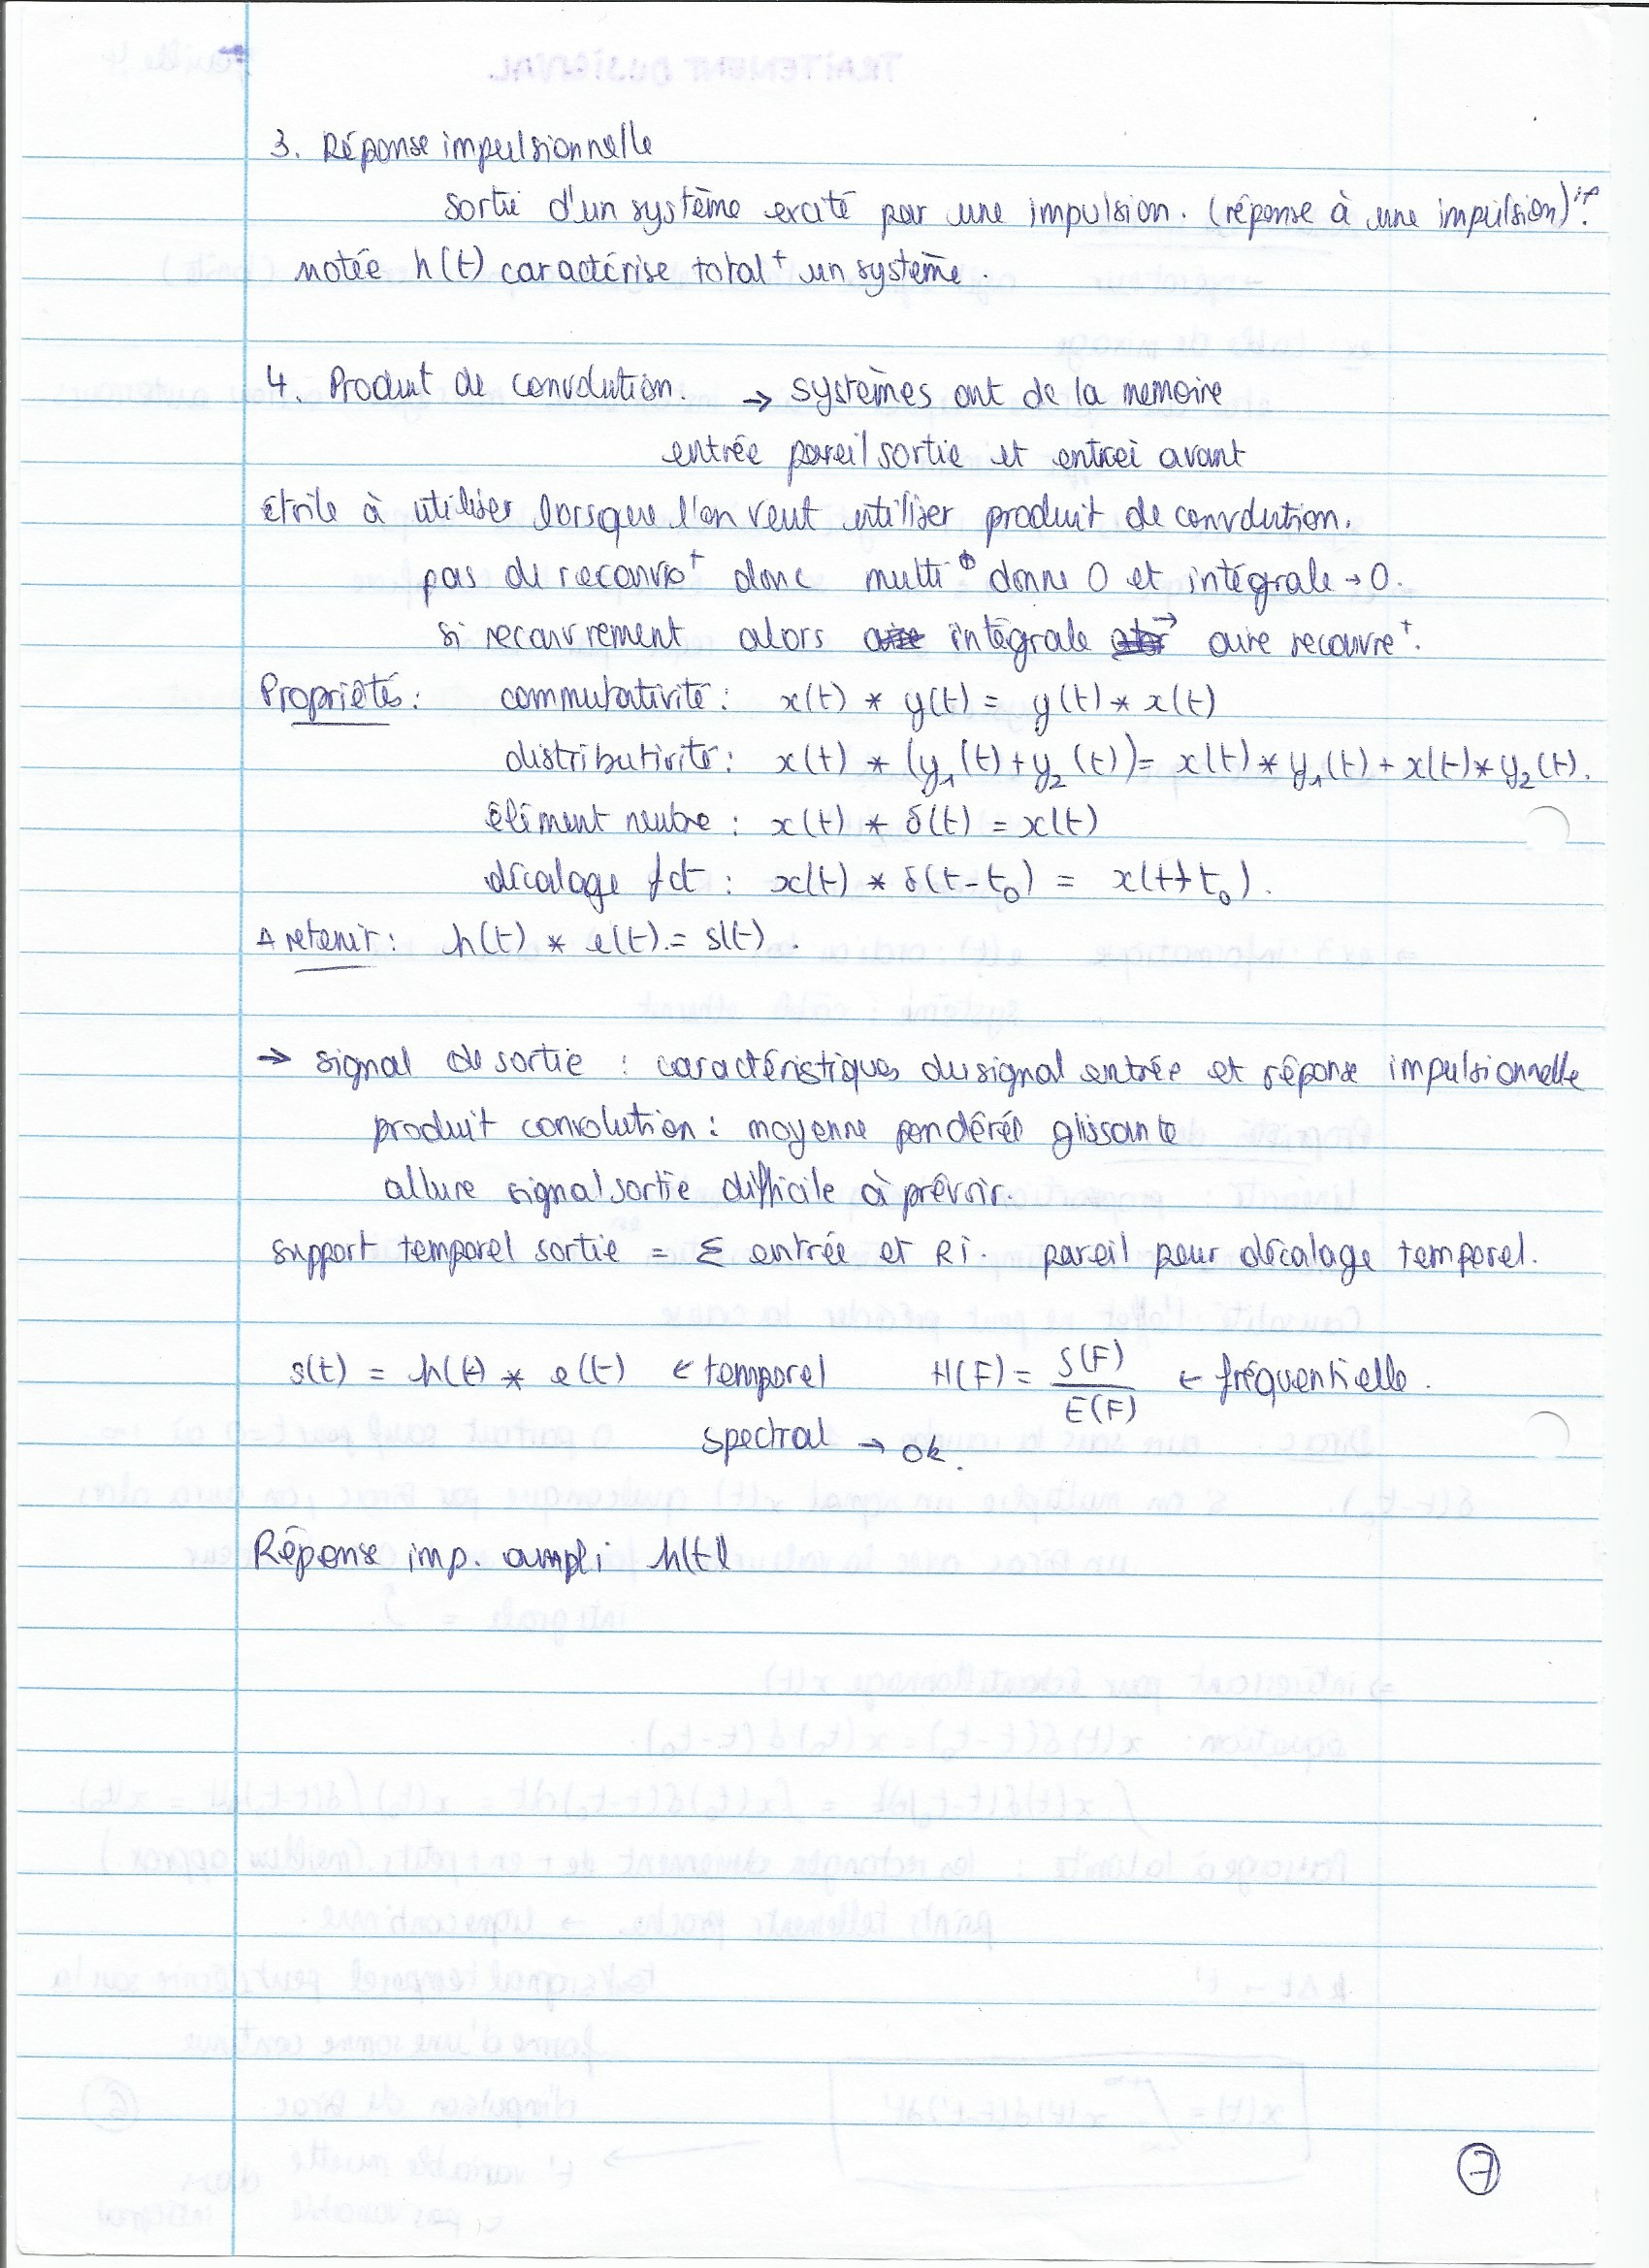 3. Réponse impulsionnelle
sortie d'un système excité par une impulsion. (réponse à une impulsion)
notée h(t) caractérise total⁺ un système.
4. Produit de convolution. → systèmes ont de la memoire
entrée pareil sortie et entrée avant
étoile à utiliser lorsque l'on veut utiliser produit de convolution.
pas de recouvr⁺ donc multi° donne 0 et intégrale → 0.
si recouvrement alors intégrale → aire recouvre⁺.
Propriétés : commutativité : x(t) * y(t) = y(t) * x(t)
distributivité : x(t) * (y₁(t) + y₂(t)) = x(t) * y₁(t) + x(t) * y₂(t).
élément neutre : x(t) * δ(t) = x(t)
décalage fct : x(t) * δ(t-t₀) = x(t+t₀).
A retenir : h(t) * e(t) = s(t).
→ signal de sortie : caractéristiques du signal entrée et réponse impulsionnelle
produit convolution : moyenne pondérée glissante
allure signal sortie difficile à prévoir.
support temporel sortie = Σ entrée et RI. pareil pour décalage temporel.
s(t) = h(t) * e(t) ← temporel H(F) = S(F)/E(F) ← fréquentielle.
spectral → ok.
Réponse imp. ampli h(t)
7